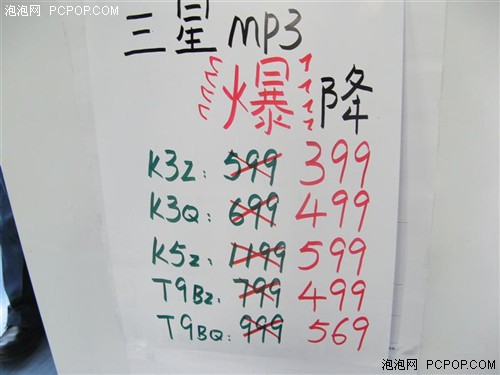 泡泡网 PCPOP.COM
泡泡网 PCPOP.COM
三星mp3
爆降
K3Z: 599 399
K3Q: 699 499
K5Z: 1199 599
T9BZ: 799 499
T9BQ: 999 569
泡泡网 PCPOP.COM